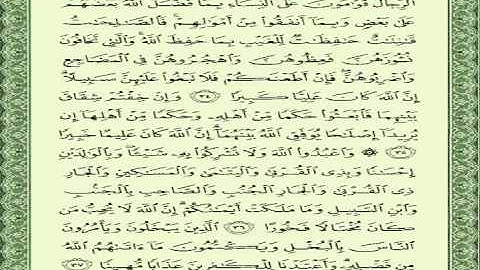 الرِّجَالُ قَوَّٰمُونَ عَلَى ٱلنِّسَآءِ بِمَا فَضَّلَ ٱللَّهُ بَعْضَهُمْ
عَلَىٰ بَعْضٍ وَبِمَآ أَنفَقُوا۟ مِنْ أَمْوَٰلِهِمْ ۚ فَٱلصَّٰلِحَٰتُ
قَٰنِتَٰتٌ حَٰفِظَٰتٌ لِّلْغَيْبِ بِمَا حَفِظَ ٱللَّهُ ۚ وَٱلَّٰتِى تَخَافُونَ
نُشُوزَهُنَّ فَعِظُوهُنَّ وَٱهْجُرُوهُنَّ فِى ٱلْمَضَاجِعِ
وَٱضْرِبُوهُنَّ ۖ فَإِنْ أَطَعْنَكُمْ فَلَا تَبْغُوا۟ عَلَيْهِنَّ سَبِيلًا ۗ
إِنَّ ٱللَّهَ كَانَ عَلِيًّا كَبِيرًا ٣٤ وَإِنْ خِفْتُمْ شِقَاقَ
بَيْنِهِمَا فَٱبْعَثُوا۟ حَكَمًا مِّنْ أَهْلِهِۦ وَحَكَمًا مِّنْ أَهْلِهَآ إِن
يُرِيدَآ إِصْلَٰحًا يُوَفِّقِ ٱللَّهُ بَيْنَهُمَآ ۗ إِنَّ ٱللَّهَ كَانَ عَلِيمًا خَبِيرًا
٣٥ ۞ وَٱعْبُدُوا۟ ٱللَّهَ وَلَا تُشْرِكُوا۟ بِهِۦ شَيْـًٔا ۖ وَبِٱلْوَٰلِدَيْنِ
إِحْسَٰنًا وَبِذِى ٱلْقُرْبَىٰ وَٱلْيَتَٰمَىٰ وَٱلْمَسَٰكِينِ وَٱلْجَارِ
ذِى ٱلْقُرْبَىٰ وَٱلْجَارِ ٱلْجُنُبِ وَٱلصَّاحِبِ بِٱلْجَنۢبِ
وَٱبْنِ ٱلسَّبِيلِ وَمَا مَلَكَتْ أَيْمَٰنُكُمْ ۗ إِنَّ ٱللَّهَ لَا يُحِبُّ مَن
كَانَ مُخْتَالًا فَخُورًا ٣٦ ٱلَّذِينَ يَبْخَلُونَ وَيَأْمُرُونَ
ٱلنَّاسَ بِٱلْبُخْلِ وَيَكْتُمُونَ مَآ ءَاتَىٰهُمُ ٱللَّهُ
مِن فَضْلِهِۦ ۗ وَأَعْتَدْنَا لِلْكَٰفِرِينَ عَذَابًا مُّهِينًا ٣٧